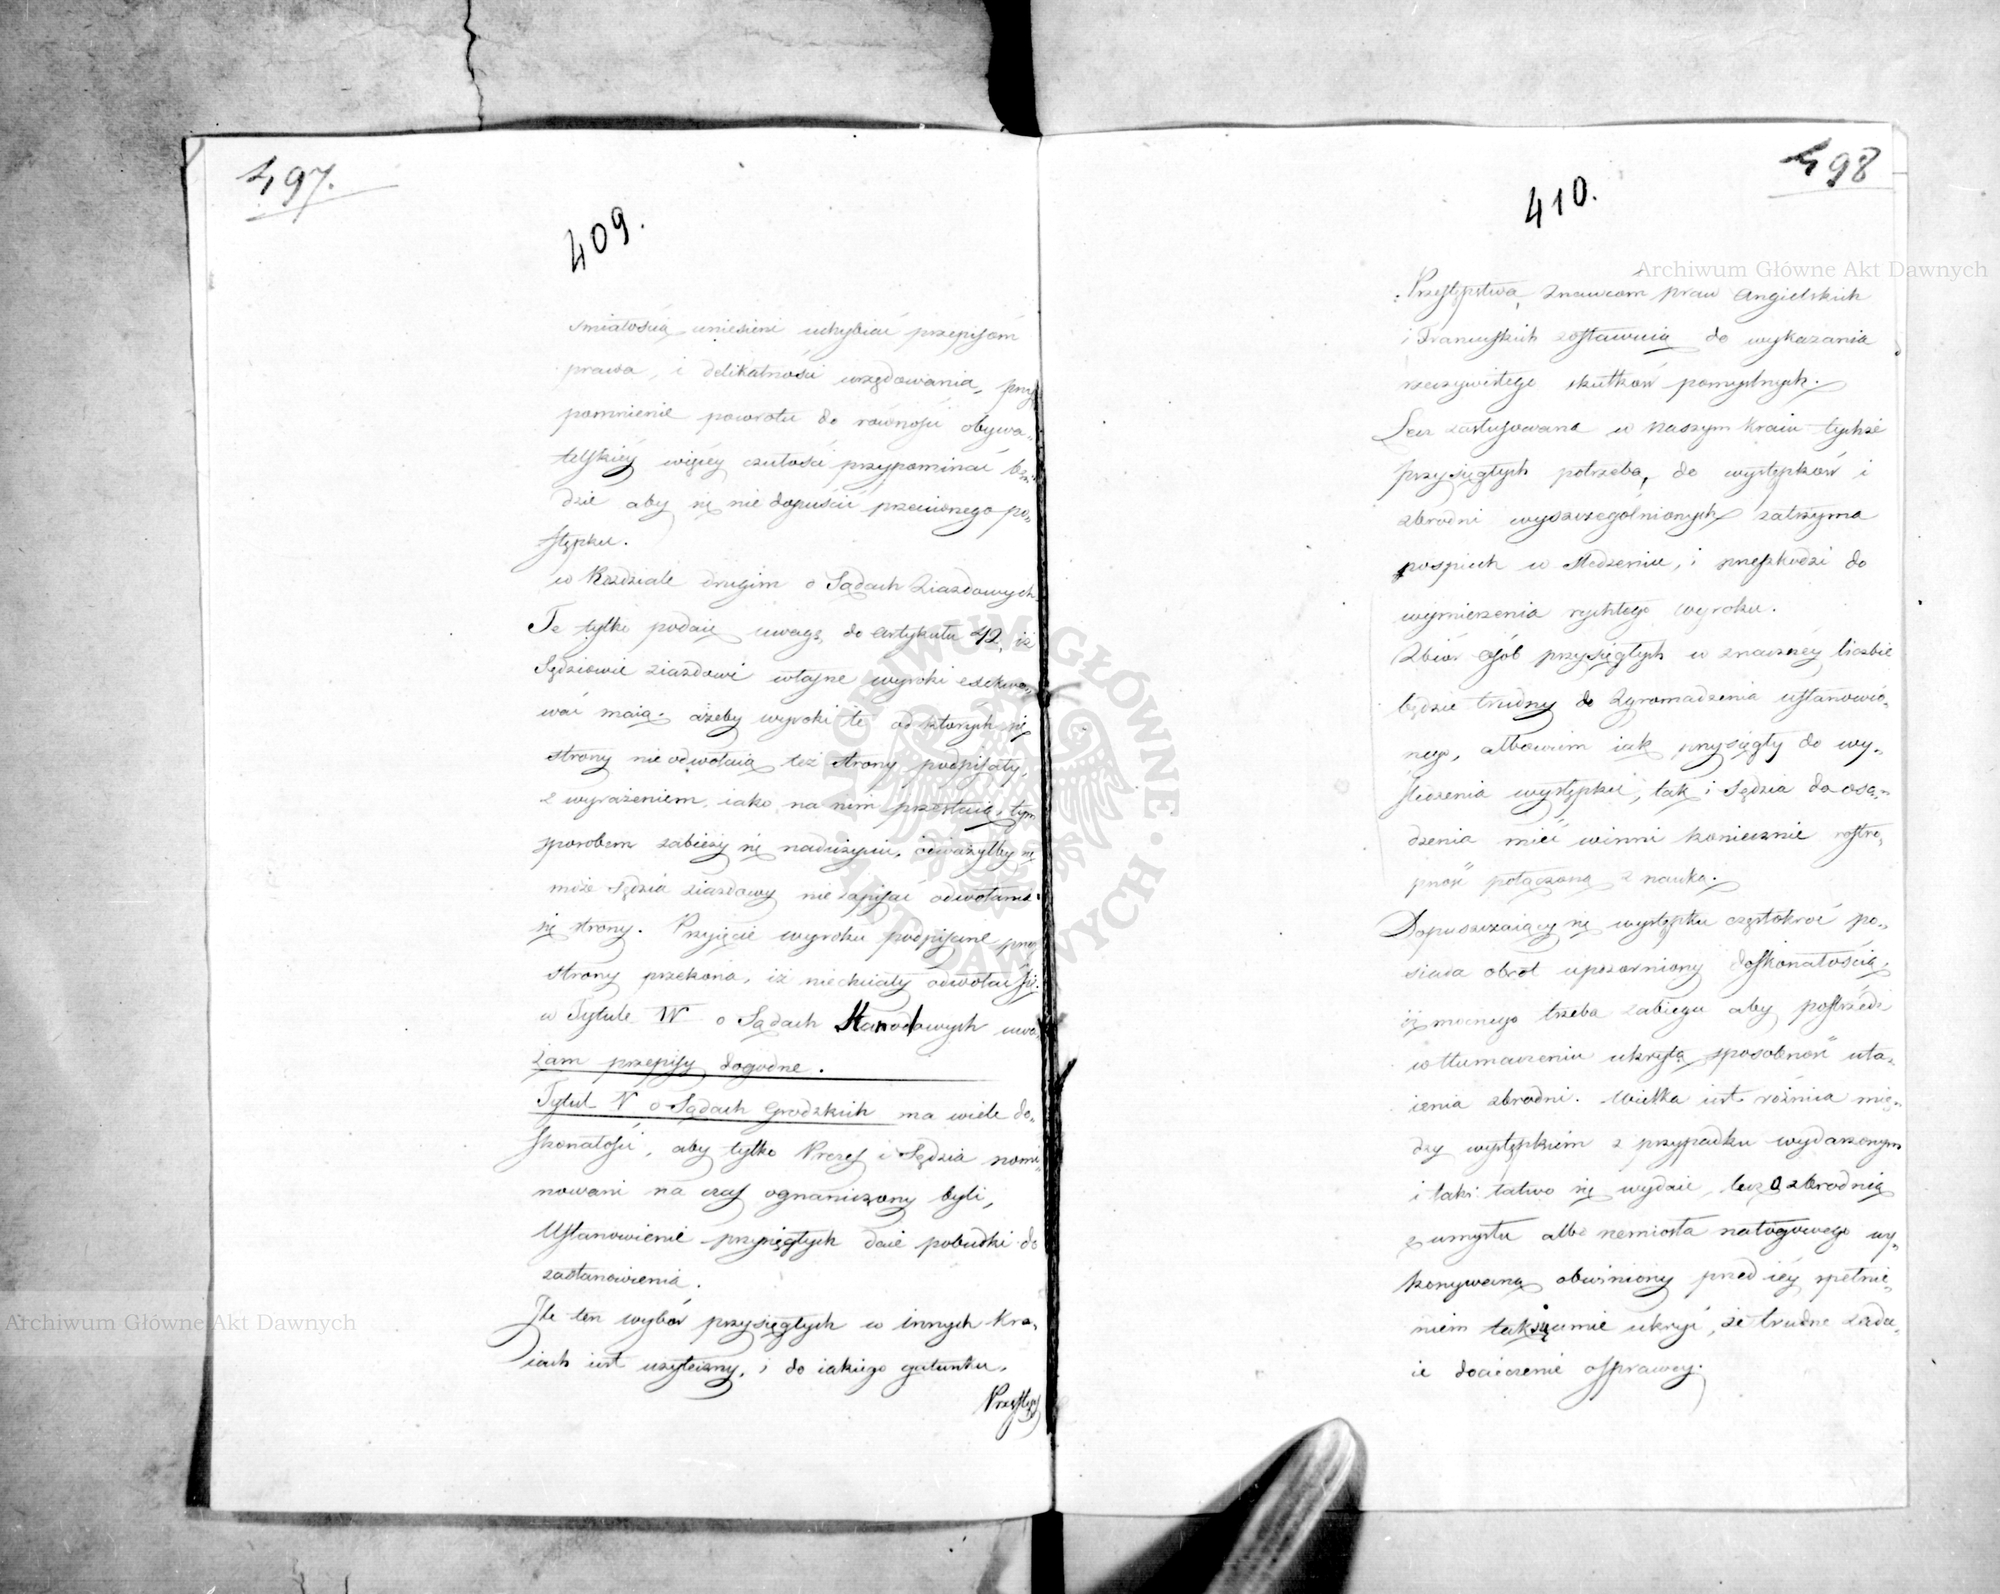 497.
409.
smiałością uniesieni uchybiać przepisom
prawa, i delikatności urzędowania, przy
pomnienie powrotu do równości obywa-
telskiey więcey czułości przypominać bę-
dzie aby się nie dopuścić przeciwnego po-
stępku.
w Rozdziale drugim o Sądach Ziazdowych
Te tylko podaię uwagę do artykułu 42, iż
Sędziowie ziazdowi własne wyroki exekwo-
wać maią. ażeby wyroki te od ktorych się
strony nie odwołaią też strony podpisały,
z wyrażeniem, iako na nim przestaią, tym
sposobem zabieży się nadużyciu, odważyłby się
może Sędzia ziazdowy nie zapisać odwołania
się strony. Przyięcie wyroku podpisane przez
strony przekona, iż niechciały odwołać się.
w Tytule IV o Sądach Stanodawych uwa-
żam przepisy dogodne.
Tytuł V o Sądach Grodzkich ma wiele do-
skonałości, aby tylko Prezes i Sędzia nomi-
nowani na czas ograniczony byli,
Ustanowienie przysięgłych daie pobudki do
zastanowienia.
Ile ten wybór przysięgłych w innych Kra-
iach iest użyteczny, i do iakiego gatunku,
Przestęp
498
410.
Przestępstwa, Znawcom praw Angielskich
i Francuskich zostawuię do wykazania
rzeczywistego skutków pomyślnych.
Lecz zastosowana w naszym Kraiu tychże
przysięgłych potrzeba, do występków i
zbrodni wyszczególnionych zatrzyma
pospiech w śledzeniu, i przeszkodzi do
wymierzenia rychłego wyroku.
Zbiór osób przysięgłych w znaczney liczbie
będzie trudny do Zgromadzenia ustanowio-
nego, albowiem iak przysięgły do wy-
śledzenia występku, tak i Sędzia do osą-
dzenia mieć winni koniecznie rostro-
pność połączoną z nauką.
Dopuszczaiący się występku częstokroć po-
siada obrot upozorniony doskonałością,
iż mocnego trzeba zabiegu aby postrzedz
w tłumaczeniu ukrytą sposobność uta-
ienia zbrodni. Wielka iest różnica mię-
dzy występkiem z przypadku wydarzonym
i taki łatwo się wydaie, lecz zbrodnią
z umysłu albo rzemiosła nałogowego wy-
konywaną obwiniony przed iey spełnie-
niem tak umie ukryć, że trudne zada-
ie docieczenie ossprawcy.
Archiwum Główne Akt Dawnych
Archiwum Główne Akt Dawnych
ARCHIWUM GŁÓWNE AKT DAWNYCH